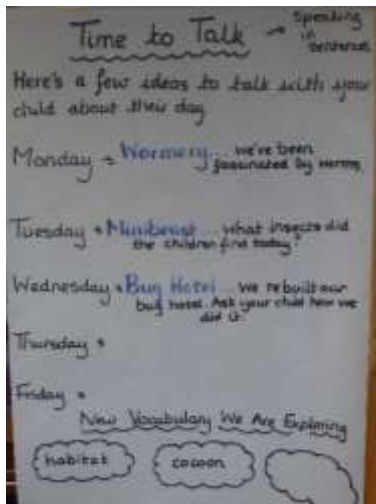 Time to Talk → Speaking
in
sentences
Here's a few ideas to talk with your
child about their day
Monday → Wormery... we've been
fascinated by worms
Tuesday → Minibeast... what insects did
the children find today?
Wednesday → Bug Hotel... We rebuilt our
bug hotel. Ask your child how we
did it.
Thursday →
Friday →
New Vocabulary We Are Exploring
habitat
cocoon